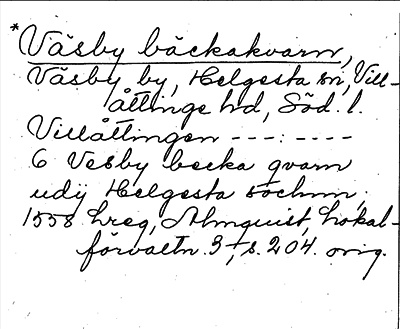 *Väsby bäckakvarn,
Väsby by, Helgesta sn, Vill-
åttinge hd, Söd. l.
Villåttingen ---:----
6 Vesby becka qvarn
udij Helgesta sochnn,
1558 hreg, Almquist, Lokal-
förvaltn. 3+, s. 204. orig.